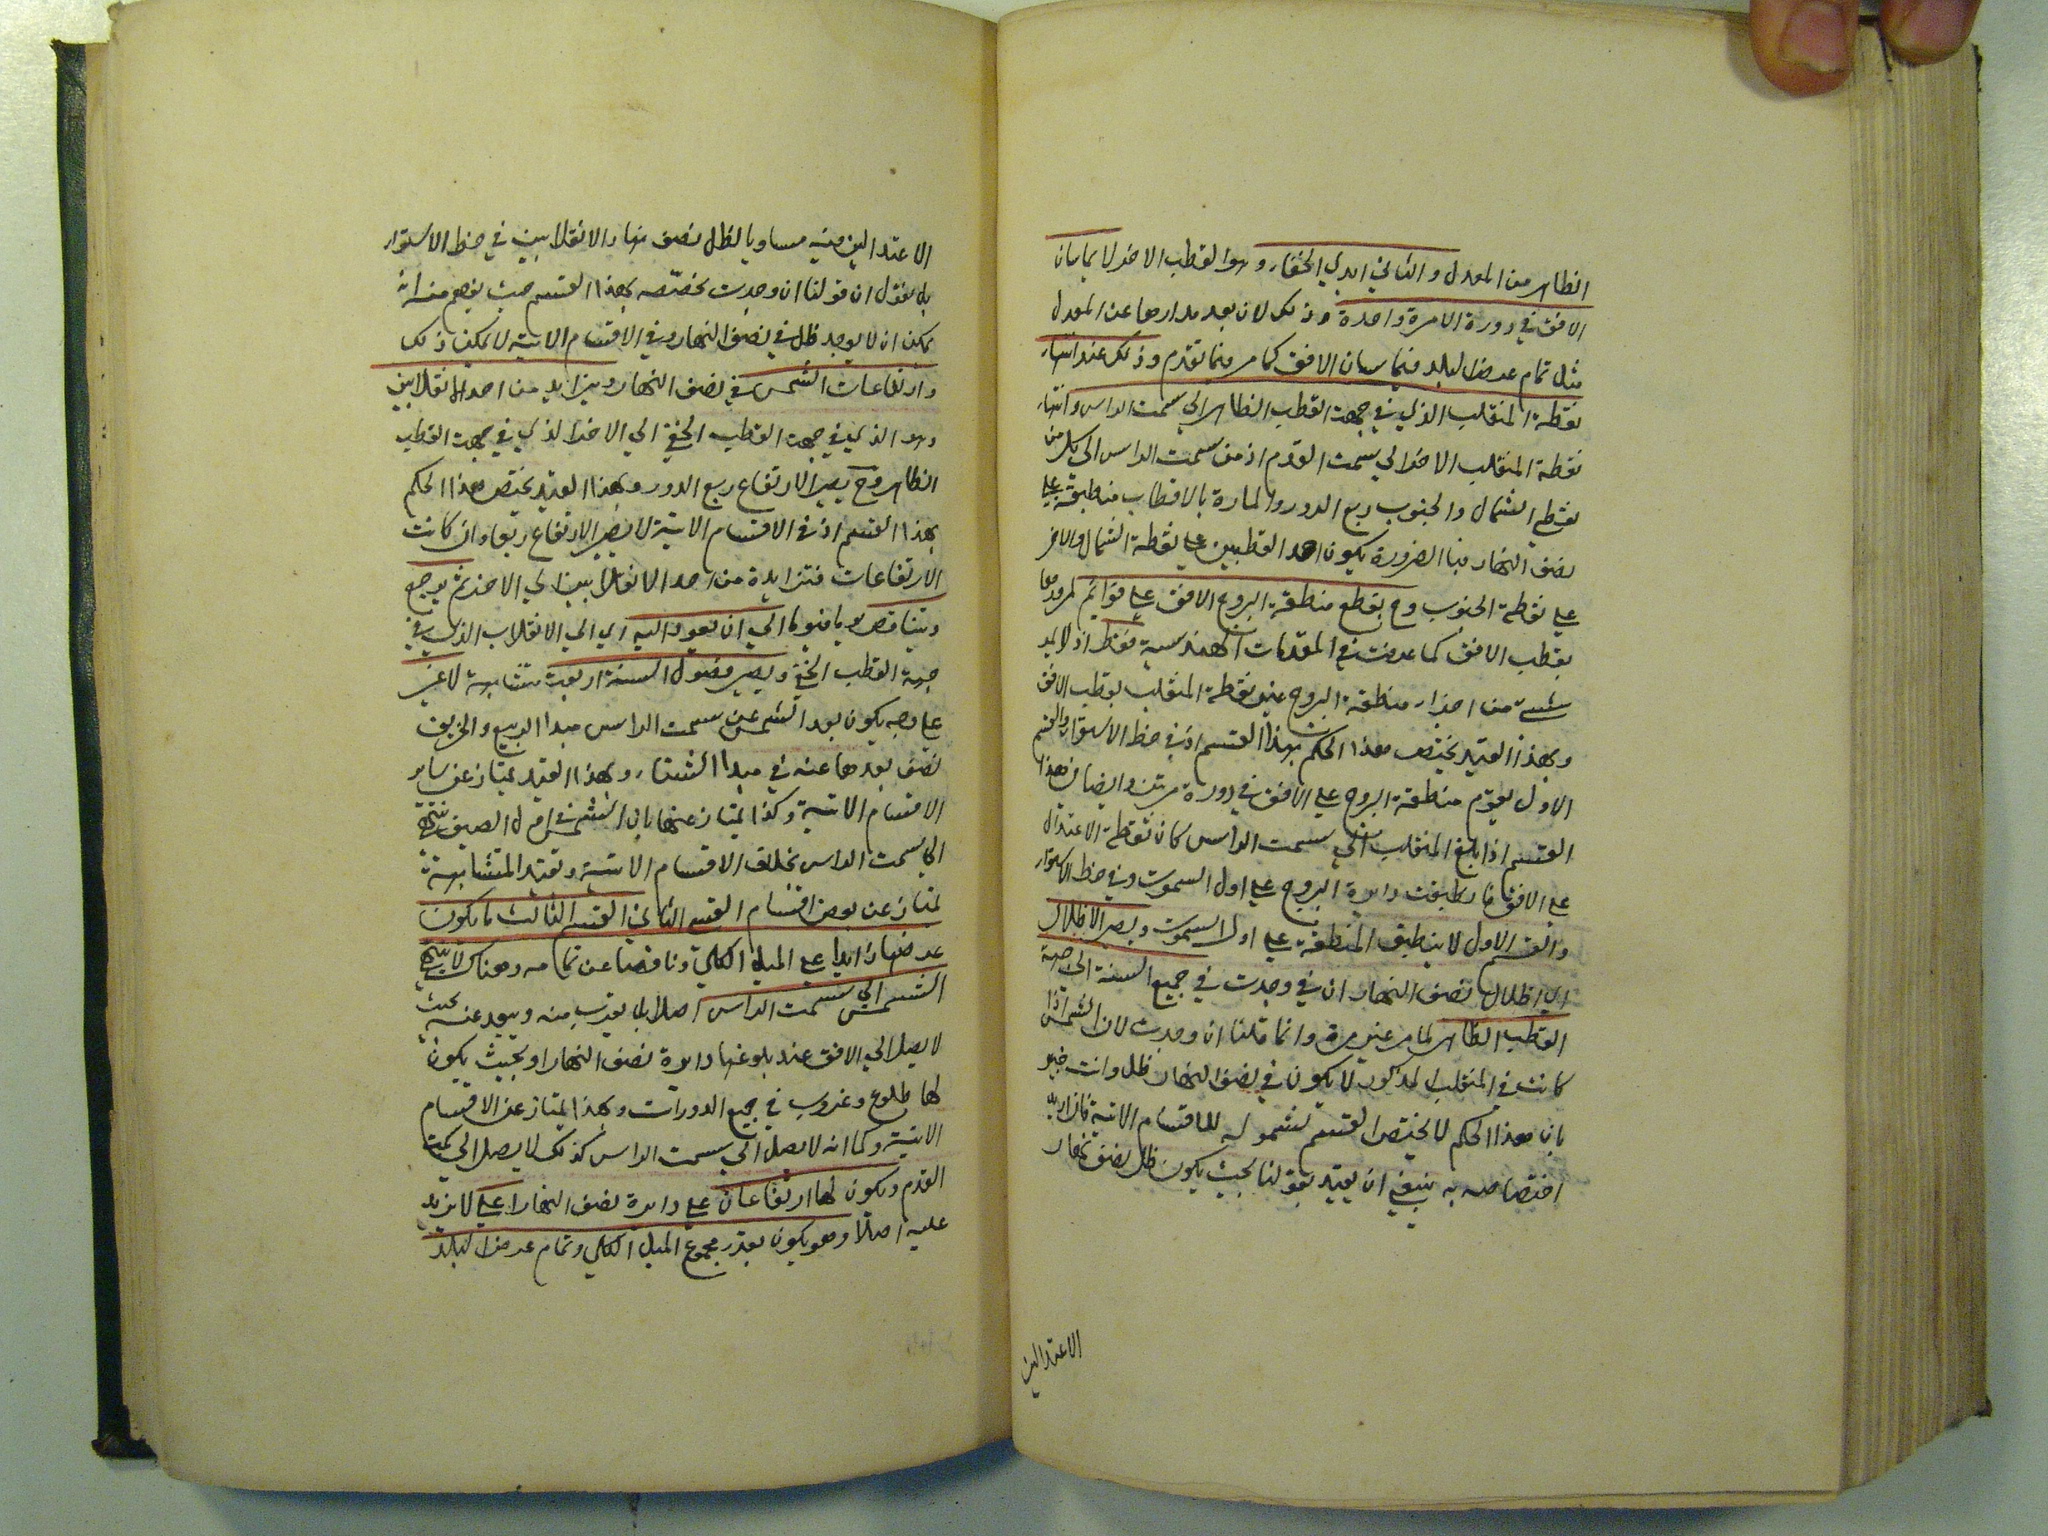 الظاهر من المعدل والثاني ابدي الخفاء وهو القطب الاخر لا يماسان
الافق في دورة الا مرة واحدة وذلك لان بعد مدارهما عن المعدل
مثل تمام عرض البلد فيماسان الافق كما مر فيما تقدم وذلك عند انتهاء
نقطة المنقلب الذي في جهة القطب الظاهر الى سمت الراس وانتهاء
نقطة المنقلب الاخر الى سمت القدم اذ من سمت الراس الى كل من
نقطتي الشمال والجنوب ربع الدور والمارة بالاقطاب منطبقة على
نصف النهار فبالضرورة يكون احد القطبين على نقطة الشمال والاخر
على نقطة الجنوب وح يقطع منطقة البروج الافق على قوائم لمرورهما
بقطب الافق كما عرفت في المقدمات الهندسية فقط اذ لا يمر
شيء من اجزاء منطقة البروج غير نقطة المنقلب بقطب الافق
وبهذا القيد يختص هذا الحكم بهذا القسم اذ في خط الاستواء والقسم
الاول يقوم منطقة البروج على الافق في دورة مرتين وايضا في هذا
القسم اذا بلغ المنقلب الى سمت الراس كان نقطة الاعتدال
على الافق فانطبقت دايرة البروج على اول السموت وفي خط الاستواء
والقسم الاول لا ينطبق المنطقة على اول السموت ويصير الاظلال
اي اظلال نصف النهار ان وجدت في جميع السنة الى جهة
القطب الظاهر لما مر غير مرة وانما قلنا ان وجدت لان الشمس اذا
كانت في المنقلب المذكور لا يكون في نصف النهار ظل وانت خبير
بان هذا الحكم لا يختص القسم لشموله للاقسام الاتية فان اريد
اختصاصه به ينبغي ان يقيد بقولنا بحيث يكون ظل نصف نهار
الاعتدالين
الاعتدالين فيه مساويا لظل نصف نهار الانقلابين في خط الاستواء
بل نقول ان قولنا ان وجدت يخصصه بهذا القسم حيث يفهم منه انه
يمكن ان لا يوجد ظل في نصف النهار وفي الاقسام الاتية لا يمكن ذلك
وارتفاعات الشمس في نصف النهار يتزايد من احد الانقلابين
وهو الذي في جهة القطب الخفي الى الاخر الذي في جهة القطب
الظاهر وح يصير الارتفاع ربع الدور وبهذا القيد يختص هذا الحكم
بهذا القسم اذ في الاقسام الاتية لا يصير الارتفاع ربعا وان كانت
الارتفاعات متزايدة من احد الانقلابين الى الاخر ثم يرجع
ويتناقص الى ان يعود اليه اي الى الانقلاب الذي في
جهة القطب الخفي ويصير فصول السنة اربعة متشابهة لا غير
على وجه يكون بعد الشمس عن سمت الراس مبدا الربيع والخريف
نصف بعدها عنه في مبدا الشتاء وبهذا القيد يمتاز عن ساير
الاقسام الاتية وكذا يمتاز عنها بان الشمس في اول الصيف تنتهي
الى سمت الراس بخلاف الاقسام الاتية وبقيد المتشابهة
يمتاز عن بعض اقسام القسم الثاني القسم الثالث ما يكون
عرضها زايدا على الميل الكلي وناقصا عن تمامه وهناك لا تنتهي
الشمس الى سمت الراس اصلا بل يقرب منه ويبعد عنه بحيث
لا يصل الى الافق عند بلوغها دايرة نصف النهار او بحيث يكون
لها طلوع وغروب في جميع الدورات وبهذا يمتاز عن الاقسام
الاتية وكما انه لا يصل الى سمت الراس كذلك لا يصل الى سمت
القدم ويكون لها ارتفاعان على دايرة نصف النهار اعلى لا يزيد
عليه اصلا وهو يكون بقدر مجموع الميل الكلي وتمام عرض البلد